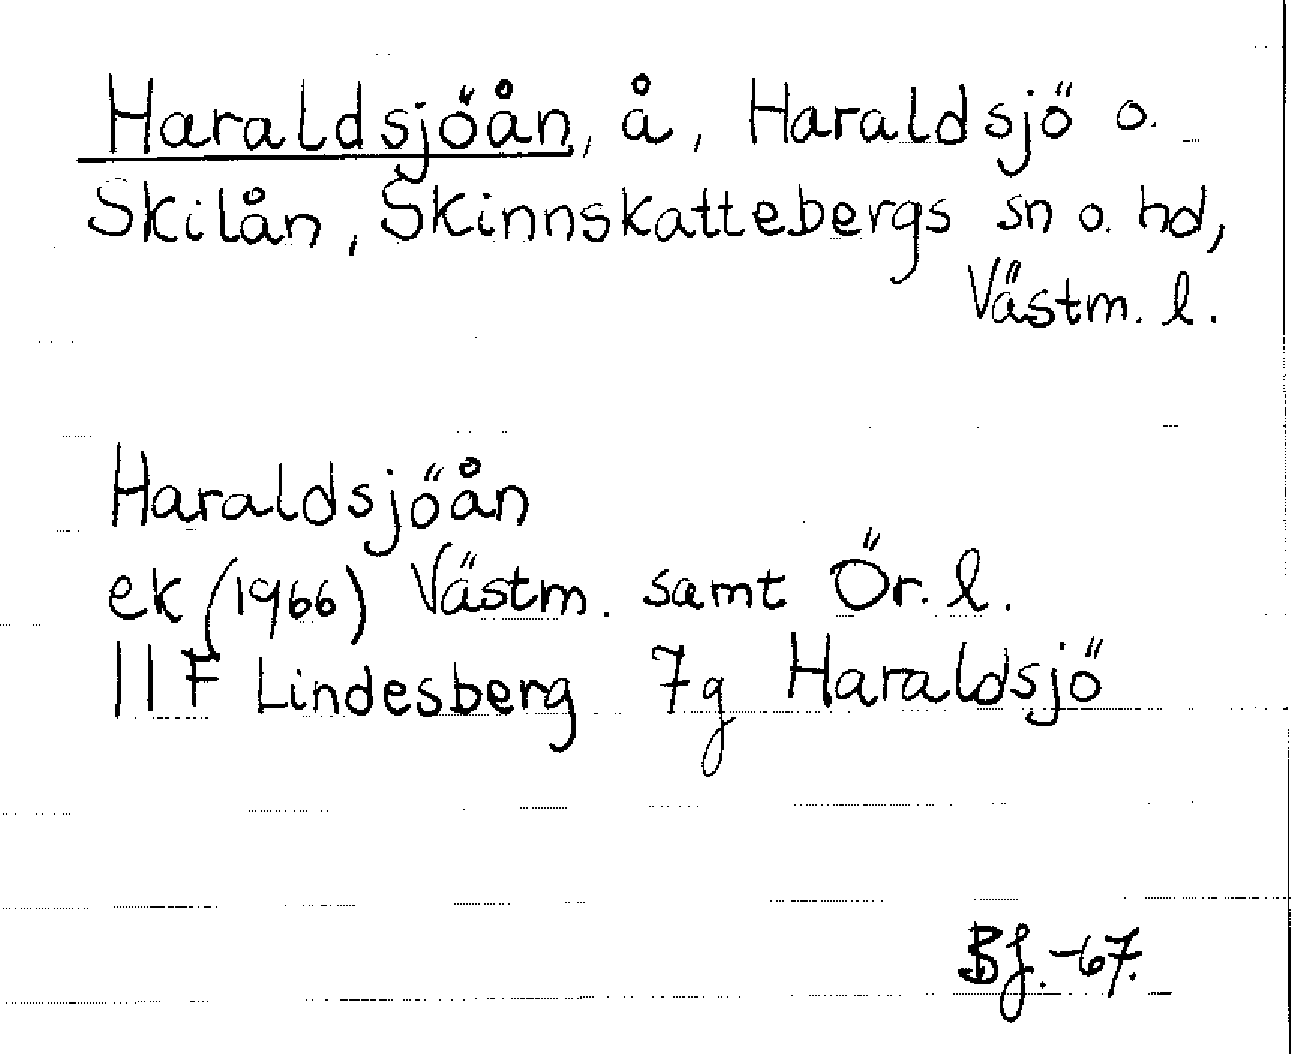 Haraldsjöån, å, Haraldsjö o.
Skilån, Skinnskattebergs sn o. hd,
Västm. l.
Haraldsjöån
ek (1966) Västm. samt Ör. l.
11F Lindesberg 7g Haraldsjö
BJ. -67.